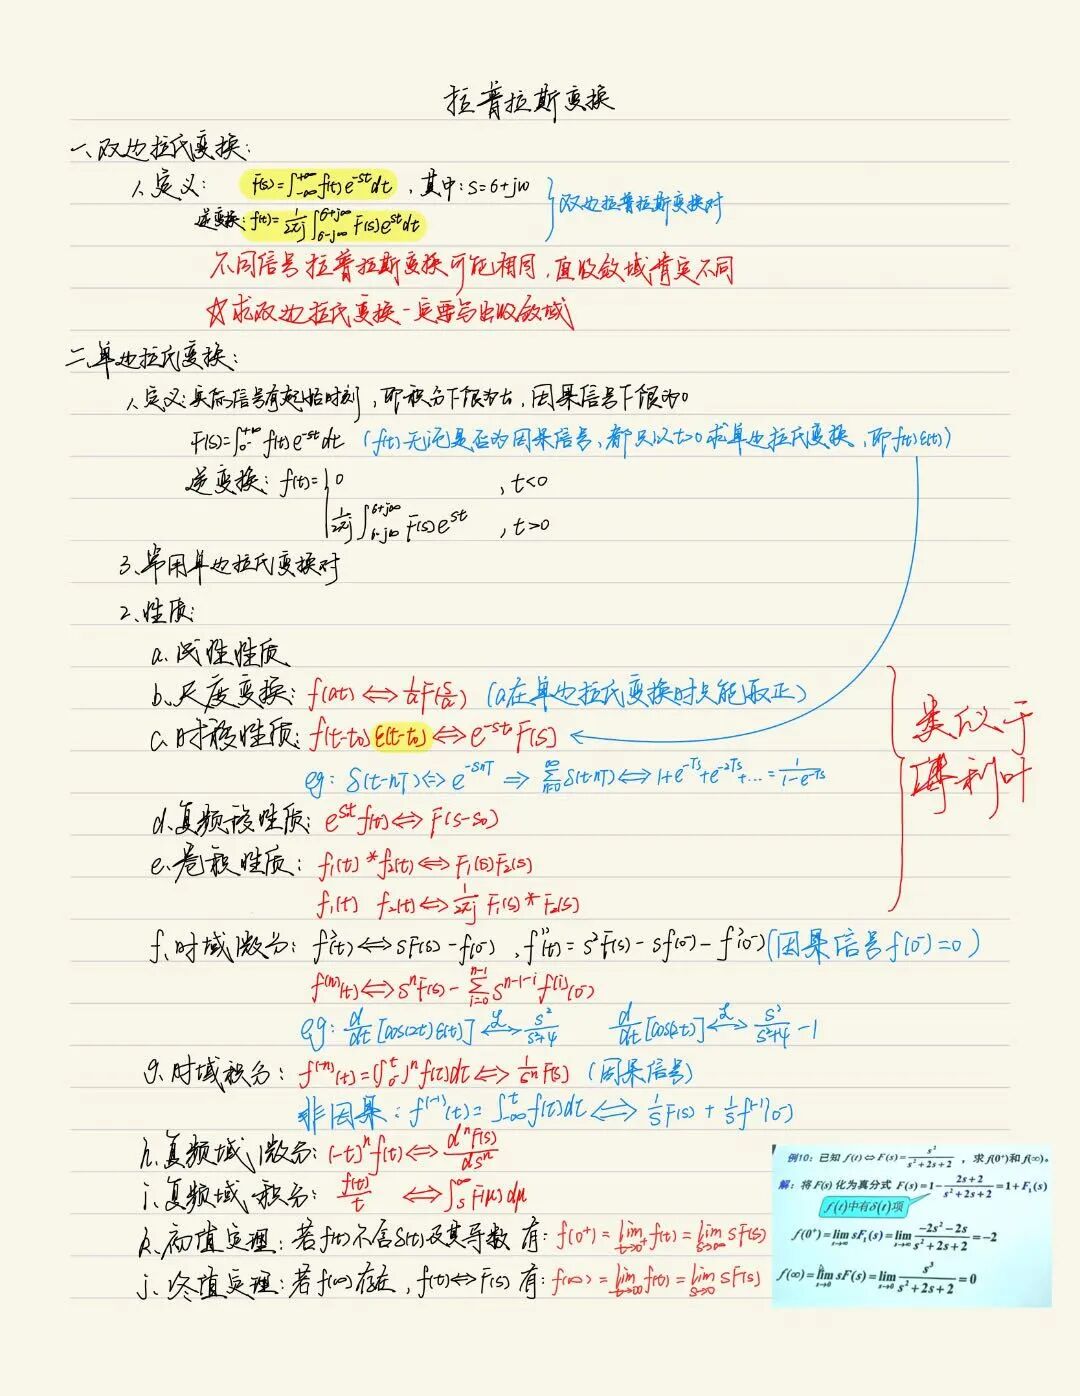 拉普拉斯变换
一、双边拉氏变换:
1、定义: F(s)=∫_{-∞}^{+∞} f(t)e^{-st}dt ,其中:s=σ+jω
逆变换:f(t)=1/2πj ∫_{σ-j∞}^{σ+j∞} F(s)e^{st}dt
双边拉普拉斯变换对
不同信号拉普拉斯变换可能相同,但收敛域肯定不同
☆求双边拉氏变换一定要写出收敛域
二、单边拉氏变换:
1、定义:实际信号有起始时刻,即积分下限为t₀,因果信号下限为0
F(s)=∫_{0^-}^{+∞} f(t)e^{-st}dt (f(t)无论是否为因果信号,都只以t>0求单边拉氏变换,即f(t)ε(t))
逆变换:f(t)={0 ,t<0
1/2πj ∫_{σ-j∞}^{σ+j∞} F(s)e^{st} ,t>0
3、常用单边拉氏变换对
2、性质:
a.线性性质
b.尺度变换:f(at)⇔1/a F(s/a) (a在单边拉氏变换时只能取正)
c.时移性质:f(t-t₀)ε(t-t₀)⇔e^{-st₀}F(s)
eg: δ(t-nT)⇔e^{-snT} ⇒ ∑_{n=0}^{∞} δ(t-nT)⇔1+e^{-Ts}+e^{-2Ts}+…=1/(1-e^{-Ts})
类似于
傅利叶
d.复频移性质:e^{s₀t}f(t)⇔F(s-s₀)
e.卷积性质:f₁(t)*f₂(t)⇔F₁(s)F₂(s)
f₁(t) f₂(t)⇔1/2πj F₁(s)*F₂(s)
f.时域微分:f'(t)⇔sF(s)-f(0^-) ,f''(t)=s²F(s)-sf(0^-)-f'(0^-)(因果信号f(0^-)=0)
f^{(n)}(t)⇔s^n F(s)-∑_{i=0}^{n-1} s^{n-1-i} f^{(i)}(0^-)
eg: d/dt[cos(2t)ε(t)] ⟷ℒ s²/(s²+4) d/dt[cos(2t)] ⟷ℒ s²/(s²+4) -1
g.时域积分:f^{(-n)}(t)=(∫_{0^-}^{t})^n f(τ)dτ⇔1/s^n F(s) (因果信号)
非因果:f^{(-1)}(t)=∫_{-∞}^{t} f(τ)dτ⇔1/s F(s)+1/s f^{(-1)}(0^-)
h.复频域微分:(-t)^n f(t)⇔d^nF(s)/ds^n
i.复频域积分:f(t)/t ⇔∫_s^∞ F(μ)dμ
k.初值定理:若f(t)不含δ(t)及其导数 有:f(0^+)=lim_{t→0^+} f(t)=lim_{s→∞} sF(s)
j.终值定理:若f(∞)存在,f(t)⇔F(s) 有:f(∞)=lim_{t→∞} f(t)=lim_{s→0} sF(s)
例10:已知 f(t)⇔F(s)=s²/(s²+2s+2) ,求 f(0⁺)和 f(∞)。
解:将 F(s) 化为真分式 F(s)=1-(2s+2)/(s²+2s+2)=1+F₁(s)
f(t)中有δ(t)项
f(0⁺)=lim_{s→∞} sF₁(s)=lim_{s→∞} (-2s²-2s)/(s²+2s+2)=-2
f(∞)=lim_{s→0} sF(s)=lim_{s→0} s³/(s²+2s+2)=0